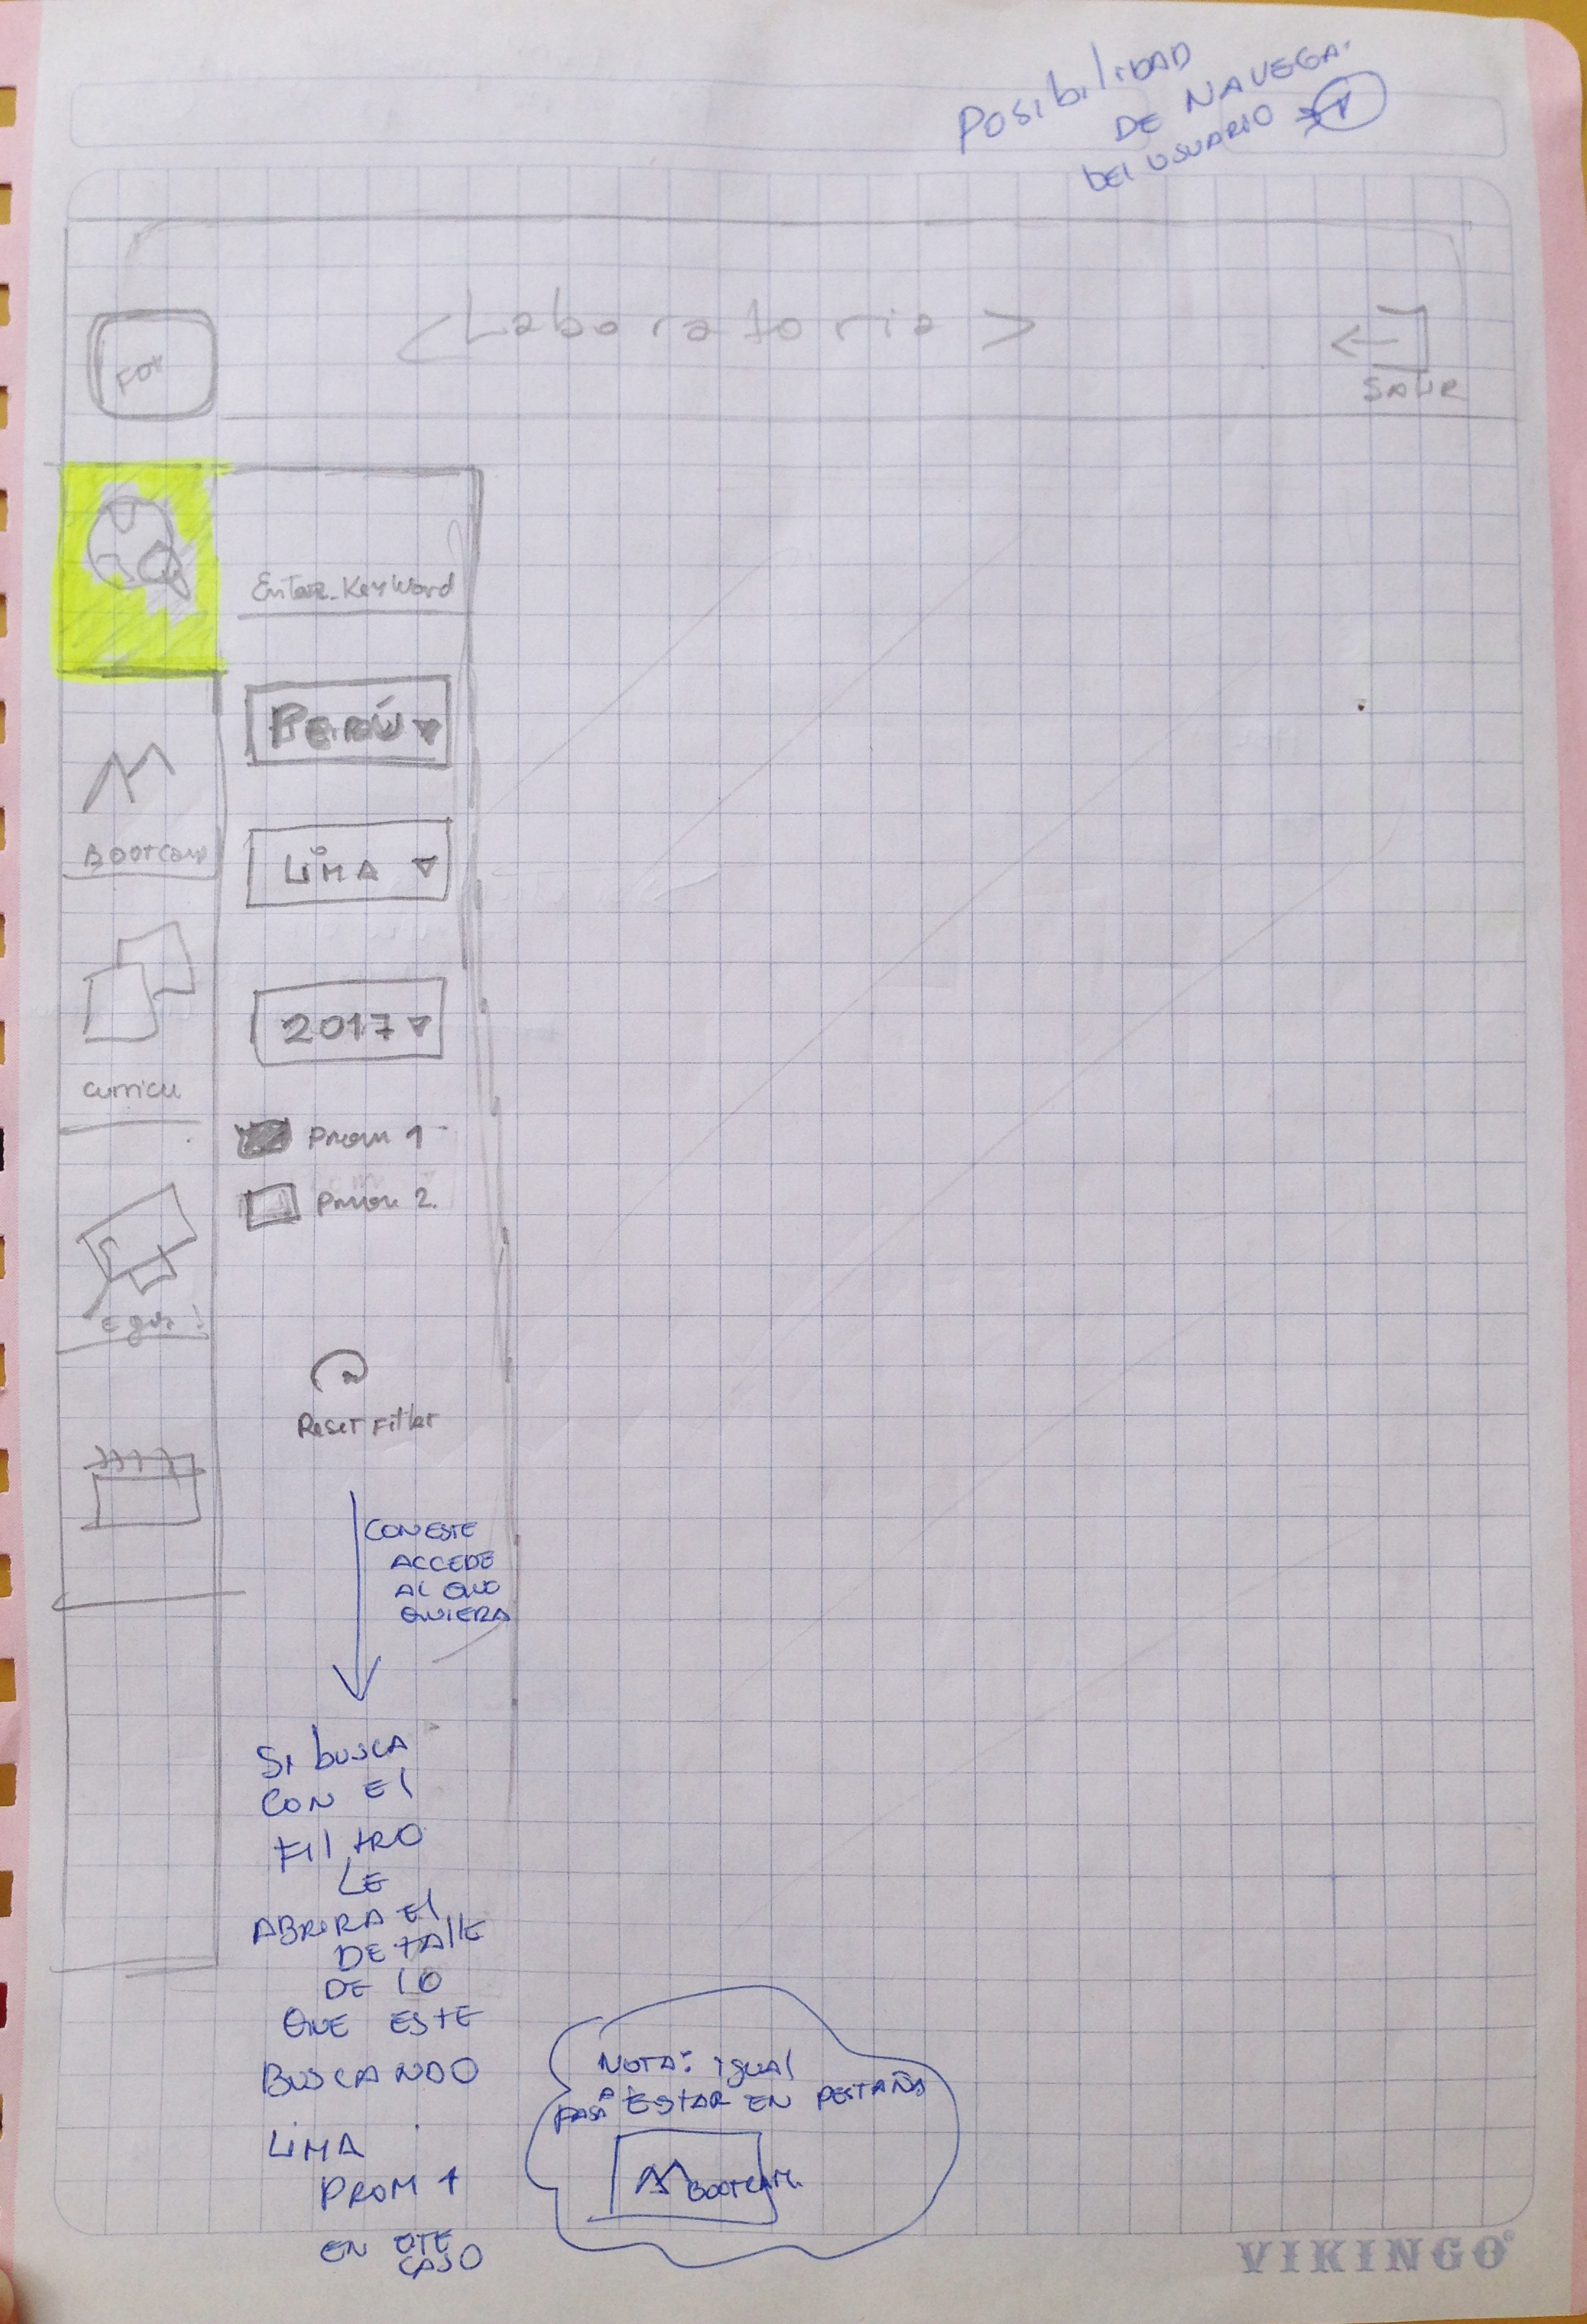 Posibilidad
DE NAVEGA.
DEl USUARIO
<Laboratoria>
SALIR
Enter Keyword
PERÚ
LIMA
Bootcamp
2017
curricu
Prom 1
Prom 2.
Reset Filter
CON ESTE
ACCEDE
Al QUE
QUIERA
Si busca
CON El
FIltRO
LE
ABRIRA El
DEtAllE
DE lO
QUE ESTE
BUSCANDO
LIMA
PROM 1
EN
CASO
NOTA: igual
PASA ESTAR EN PESTAÑA
BOOTCAM.
VIKINGO